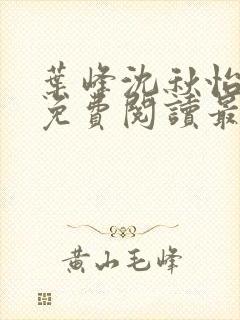 葉峰沈秋怡
免費閱讀最
黄山毛峰